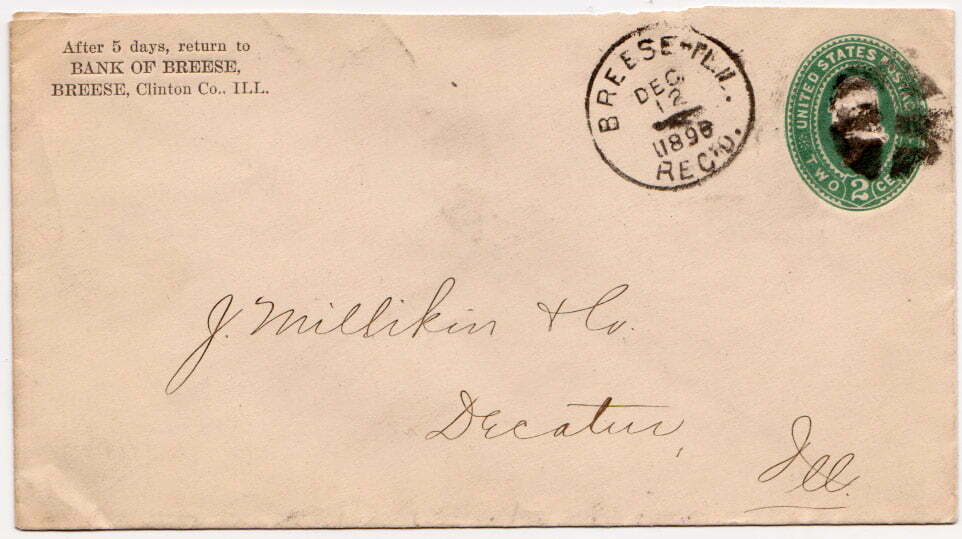 After 5 days, return to
BANK OF BREESE,
BREESE, Clinton Co., ILL.
BREESE ILL.
DEC
12
REC'D.
UNITED STATES
TWO 2
J. Millikin & Co.
Decatur,
Ill.